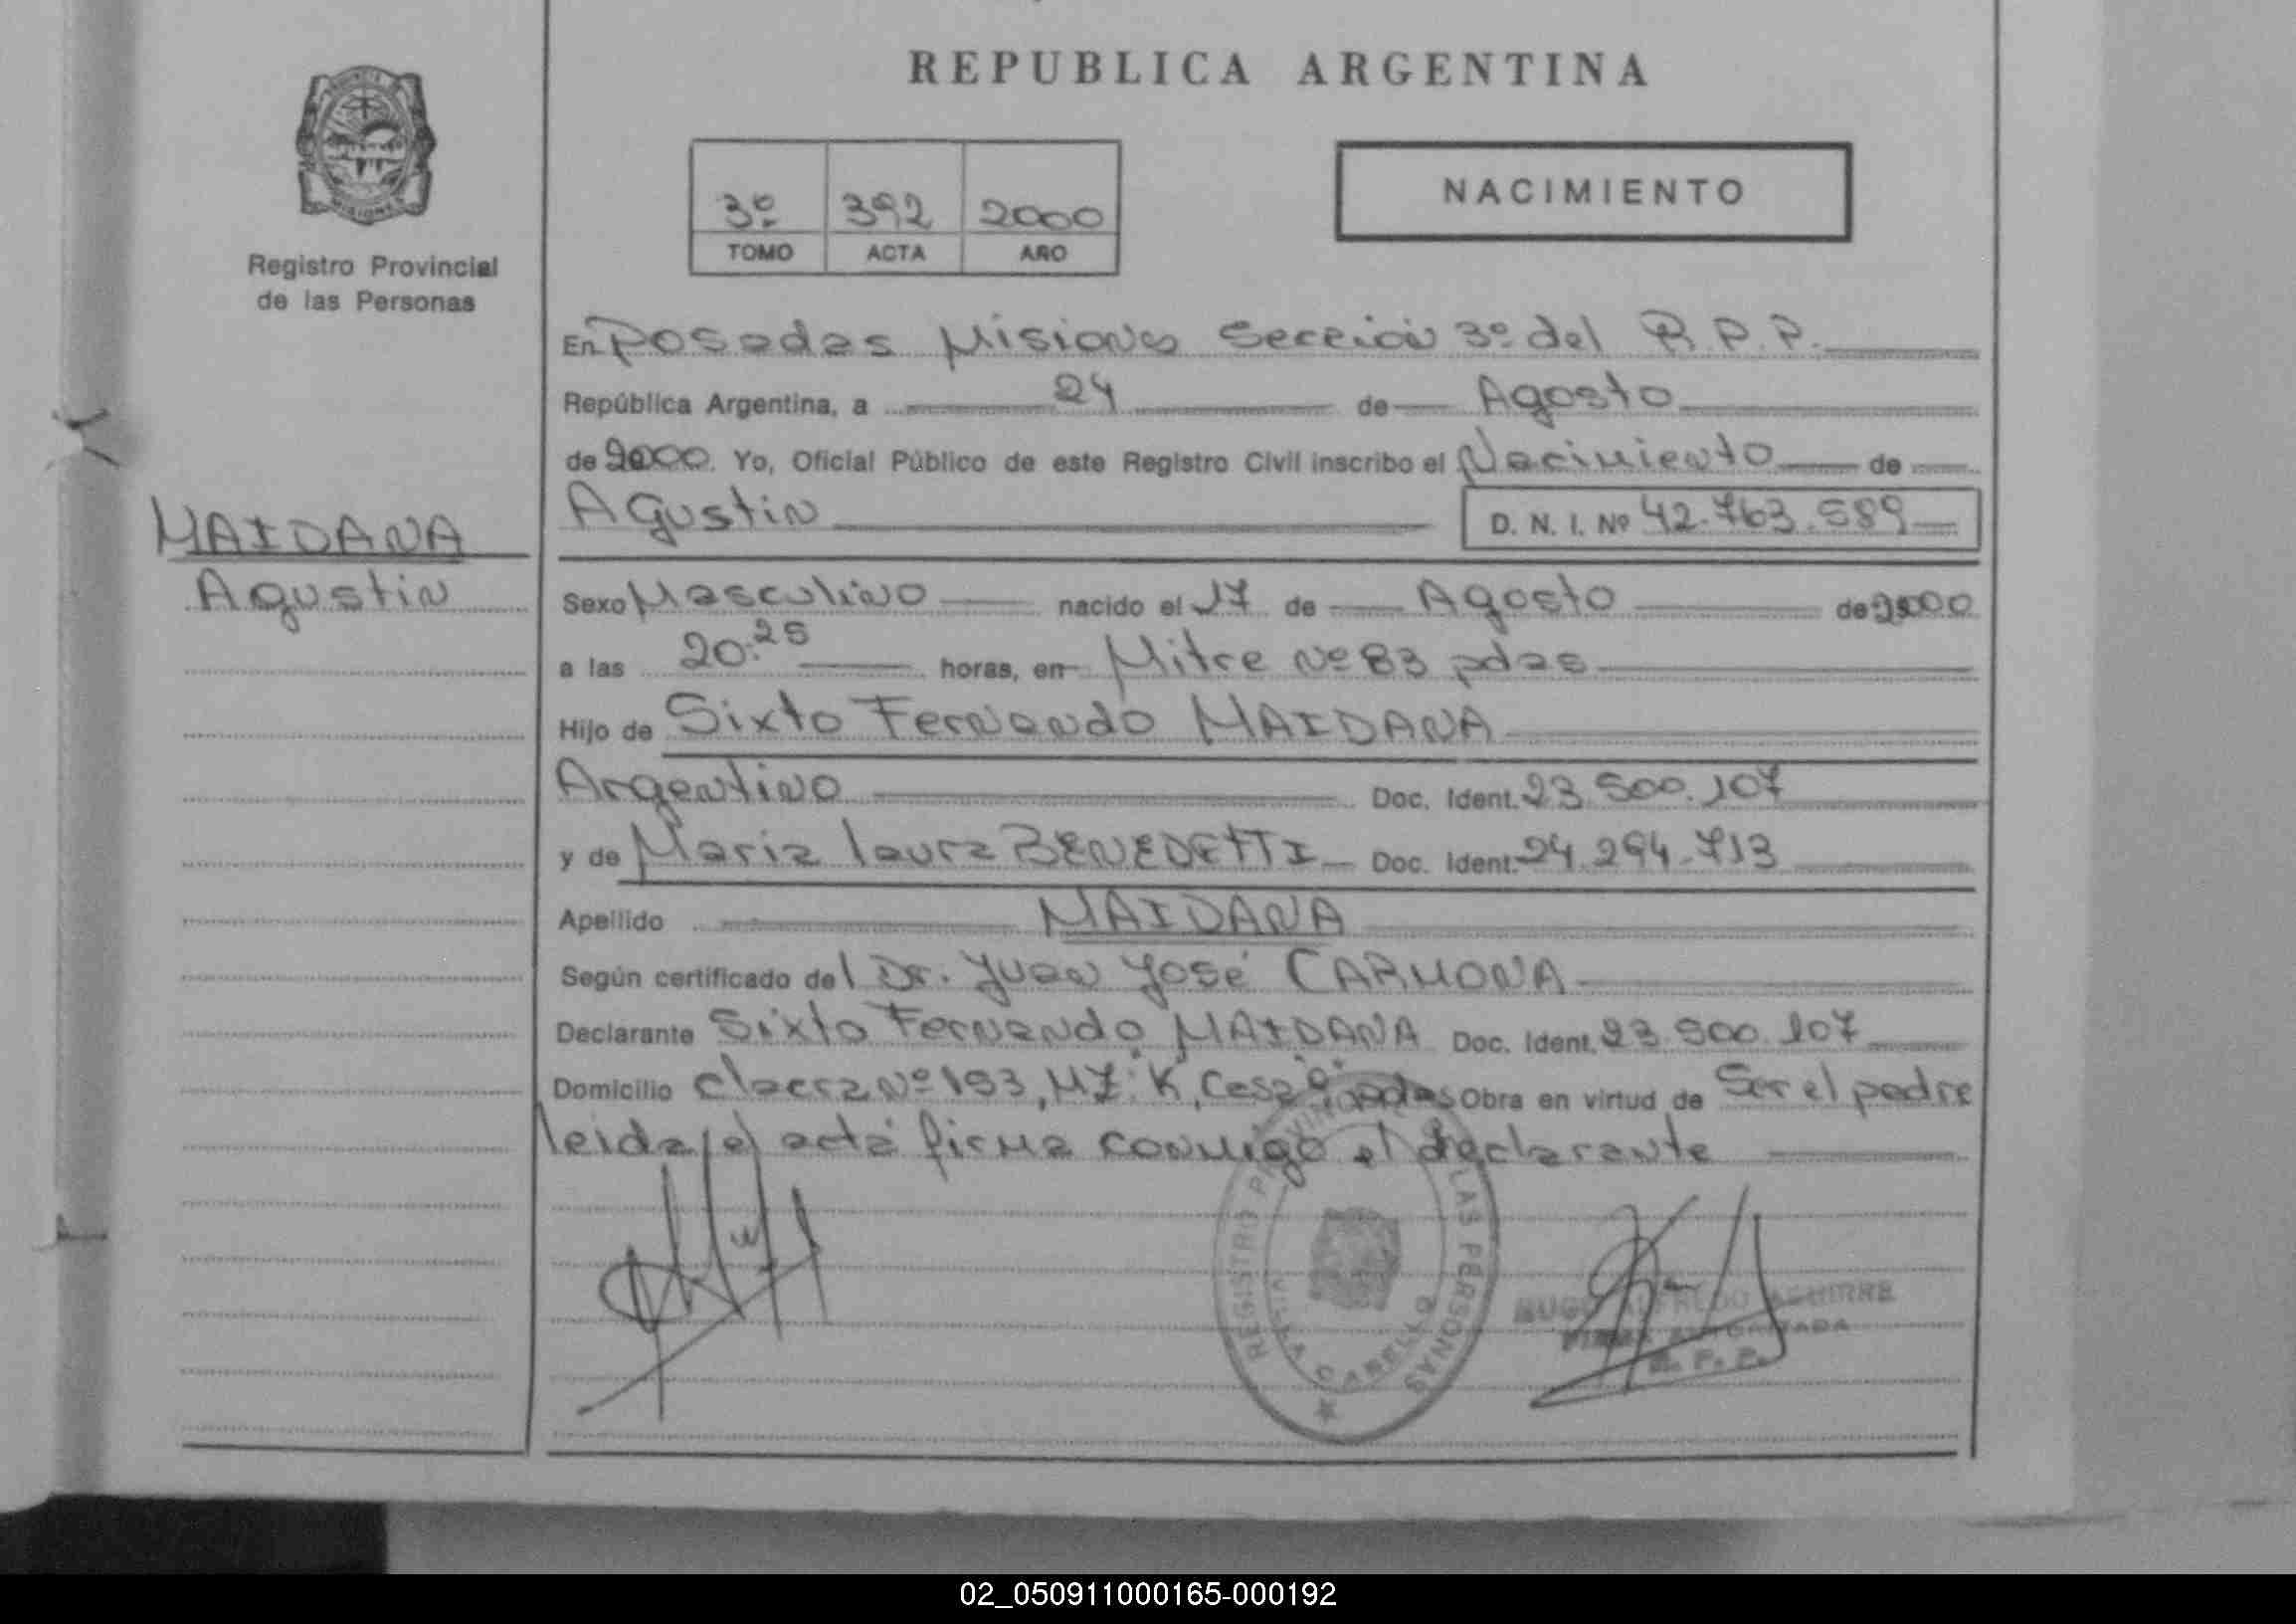 REPUBLICA ARGENTINA
NACIMIENTO
3º 392 2000
TOMO ACTA AÑO
Registro Provincial
de las Personas
En Posadas Misiones Sección 3º del R.P.P.
República Argentina, a 24 de Agosto
de 2000. Yo, Oficial Público de este Registro Civil inscribo el Nacimiento de
Agustin D. N. I. Nº 42.763.589
MAIDANA
Agustin
Sexo Masculino nacido el 17 de Agosto de 2000
a las 20:25 horas, en Mitre Nº 83 pdas
Hijo de Sixto Fernando MAIDANA
Argentino Doc. Ident. 23.500.107
y de Maria laura BENEDETTI Doc. Ident. 24.294.713
Apellido MAIDANA
Según certificado del Dr. Juan José CARMONA
Declarante Sixto Fernando MAIDANA Doc. Ident. 23.500.107
Domicilio Chacra Nº 193, MZ "K", Casa pdas Obra en virtud de Ser el padre
leida el acta firma conmigo el declarante
REGISTRO PROVINCIAL LAS PERSONAS
VILLA CABELLO
HUGO ALFREDO AGUIRRE
FIRMA AUTORIZADA
R. P. P.
02_050911000165-000192